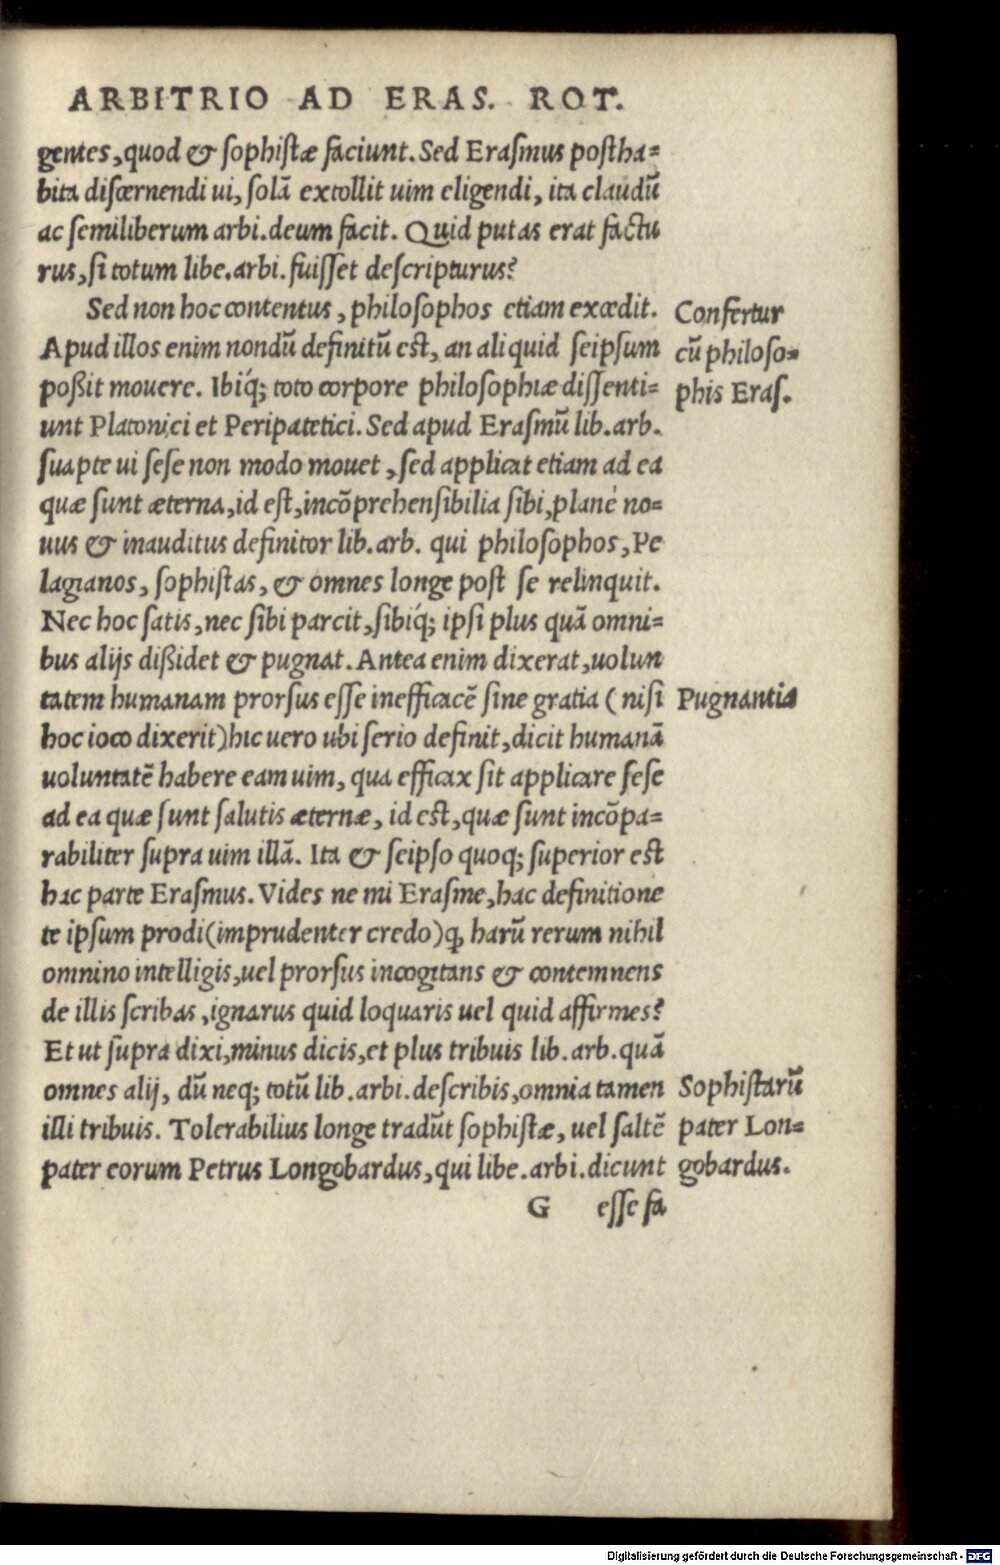 ARBITRIO AD ERAS. ROT.
gentes, quod & ſophiſtæ faciunt. Sed Eraſmus poſtha=
bita diſcernendi ui, ſolā extollit uim eligendi, ita claudū
ac ſemiliberum arbi. deum facit. Quid putas erat factu
rus, ſi totum libe. arbi. fuiſſet deſcripturus?
Sed non hoc contentus, philoſophos etiam excedit.
Apud illos enim nondū definitū eſt, an aliquid ſeipſum
poßit mouere. Ibiq́; toto corpore philoſophiæ diſſenti=
unt Platonici et Peripatetici. Sed apud Eraſmū lib. arb.
ſuapte ui ſeſe non modo mouet, ſed applicat etiam ad ea
quæ ſunt æterna, id eſt, incōprehenſibilia ſibi, planè no=
uus & inauditus definitor lib. arb. qui philoſophos, Pe
lagianos, ſophiſtas, & omnes longe poſt ſe relinquit.
Nec hoc ſatis, nec ſibi parcit, ſibiq́; ipſi plus quā omni=
bus alijs dißidet & pugnat. Antea enim dixerat, uolun
tatem humanam prorſus eſſe inefficacē ſine gratia (niſi
hoc ioco dixerit) hic uero ubi ſerio definit, dicit humanā
uoluntatē habere eam uim, qua efficax ſit applicare ſeſe
ad ea quæ ſunt ſalutis æternæ, id eſt, quæ ſunt incōpa=
rabiliter ſupra uim illā. Ita & ſeipſo quoq; ſuperior eſt
hac parte Eraſmus. Vides ne mi Eraſme, hac definitione
te ipſum prodi (imprudenter credo) ꝙ harū rerum nihil
omnino intelligis, uel prorſus incogitans & contemnens
de illis ſcribas, ignarus quid loquaris uel quid affirmes?
Et ut ſupra dixi, minus dicis, et plus tribuis lib. arb. quā
omnes alij, dū neq; totū lib. arbi. deſcribis, omnia tamen
illi tribuis. Tolerabilius longe tradūt ſophiſtæ, uel ſaltē
pater eorum Petrus Longobardus, qui libe. arbi. dicunt
G eſſe fa
Confertur
cū philoſo=
phis Eraſ.
Pugnantia
Sophiſtarū
pater Lon=
gobardus.
Digitalisierung gefördert durch die Deutsche Forschungsgemeinschaft - DFG